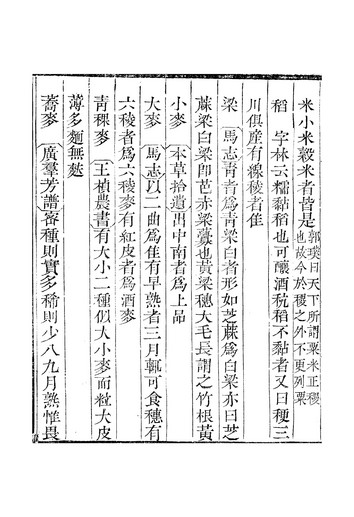 米小米穀米者皆是郭璞曰天下所謂粟米正稷
也故今於稷之外不更列粟
稻　字林云糯黏稻也可釀酒秔稻不黏者又曰稉三
川俱產有線稜者佳
梁　馬志青者為青梁白者形如芝蔴為白梁亦曰芝
蔴梁白梁即芑赤梁虋也黃梁穗大毛長謂之竹根黃
小麥　本草拾遺出中南者為上品
大麥　馬志以二曲為佳有早熟者三月輒可食穗有
六稜者為六稜麥有紅皮者為酒麥
青稞麥　王楨農書有大小二種似大小麥而粒大皮
薄多麵無麩
蕎麥　廣羣芳譜密種則實多稀則少八九月熟惟畏